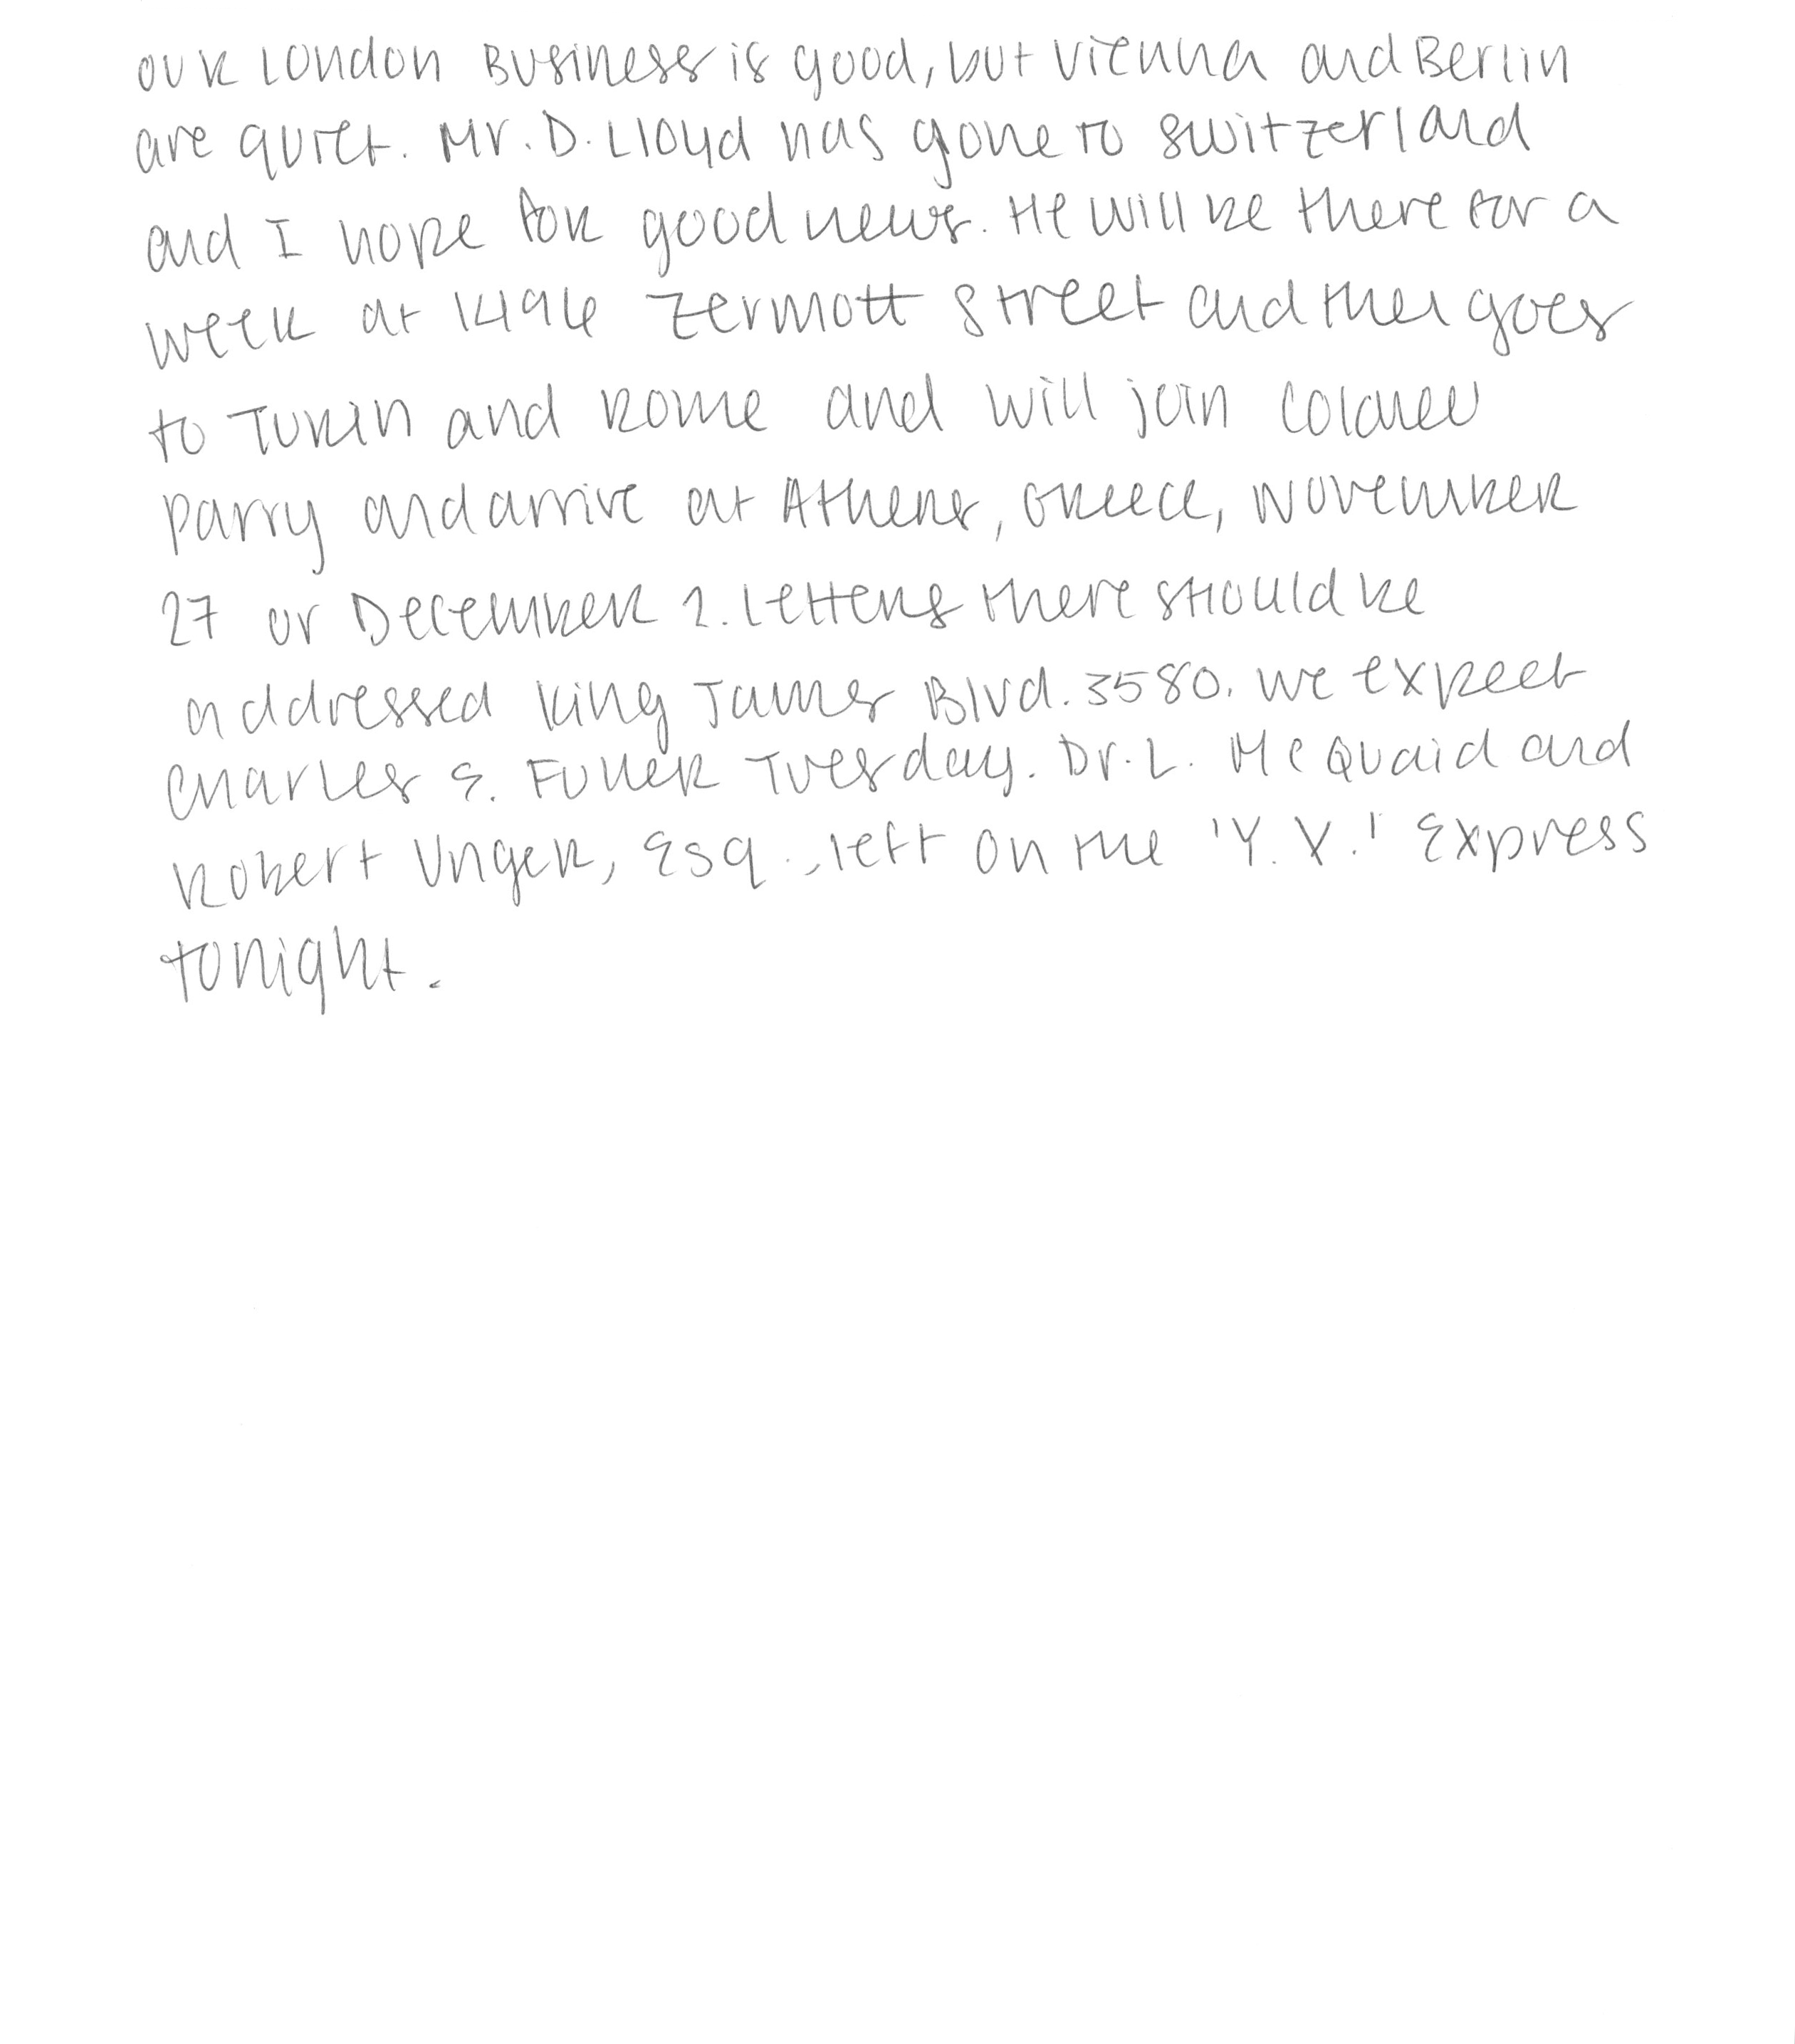 Our London Business is good, but Vienna and Berlin
are quiet. Mr. D. Lloyd has gone to Switzerland
and I hope for good news. He will be there for a
week at 1496 Zermott Street and then goes
to Turin and Rome and will join Colonel
Parry and arrive at Athens, Greece, November
27 or December 2. Letters there should be
addressed King James Blvd. 3580. We expect
Charles E. Fuller Tuesday. Dr. L. McQuaid and
Robert Unger, Esq., left on the 'Y.X.' Express
tonight.